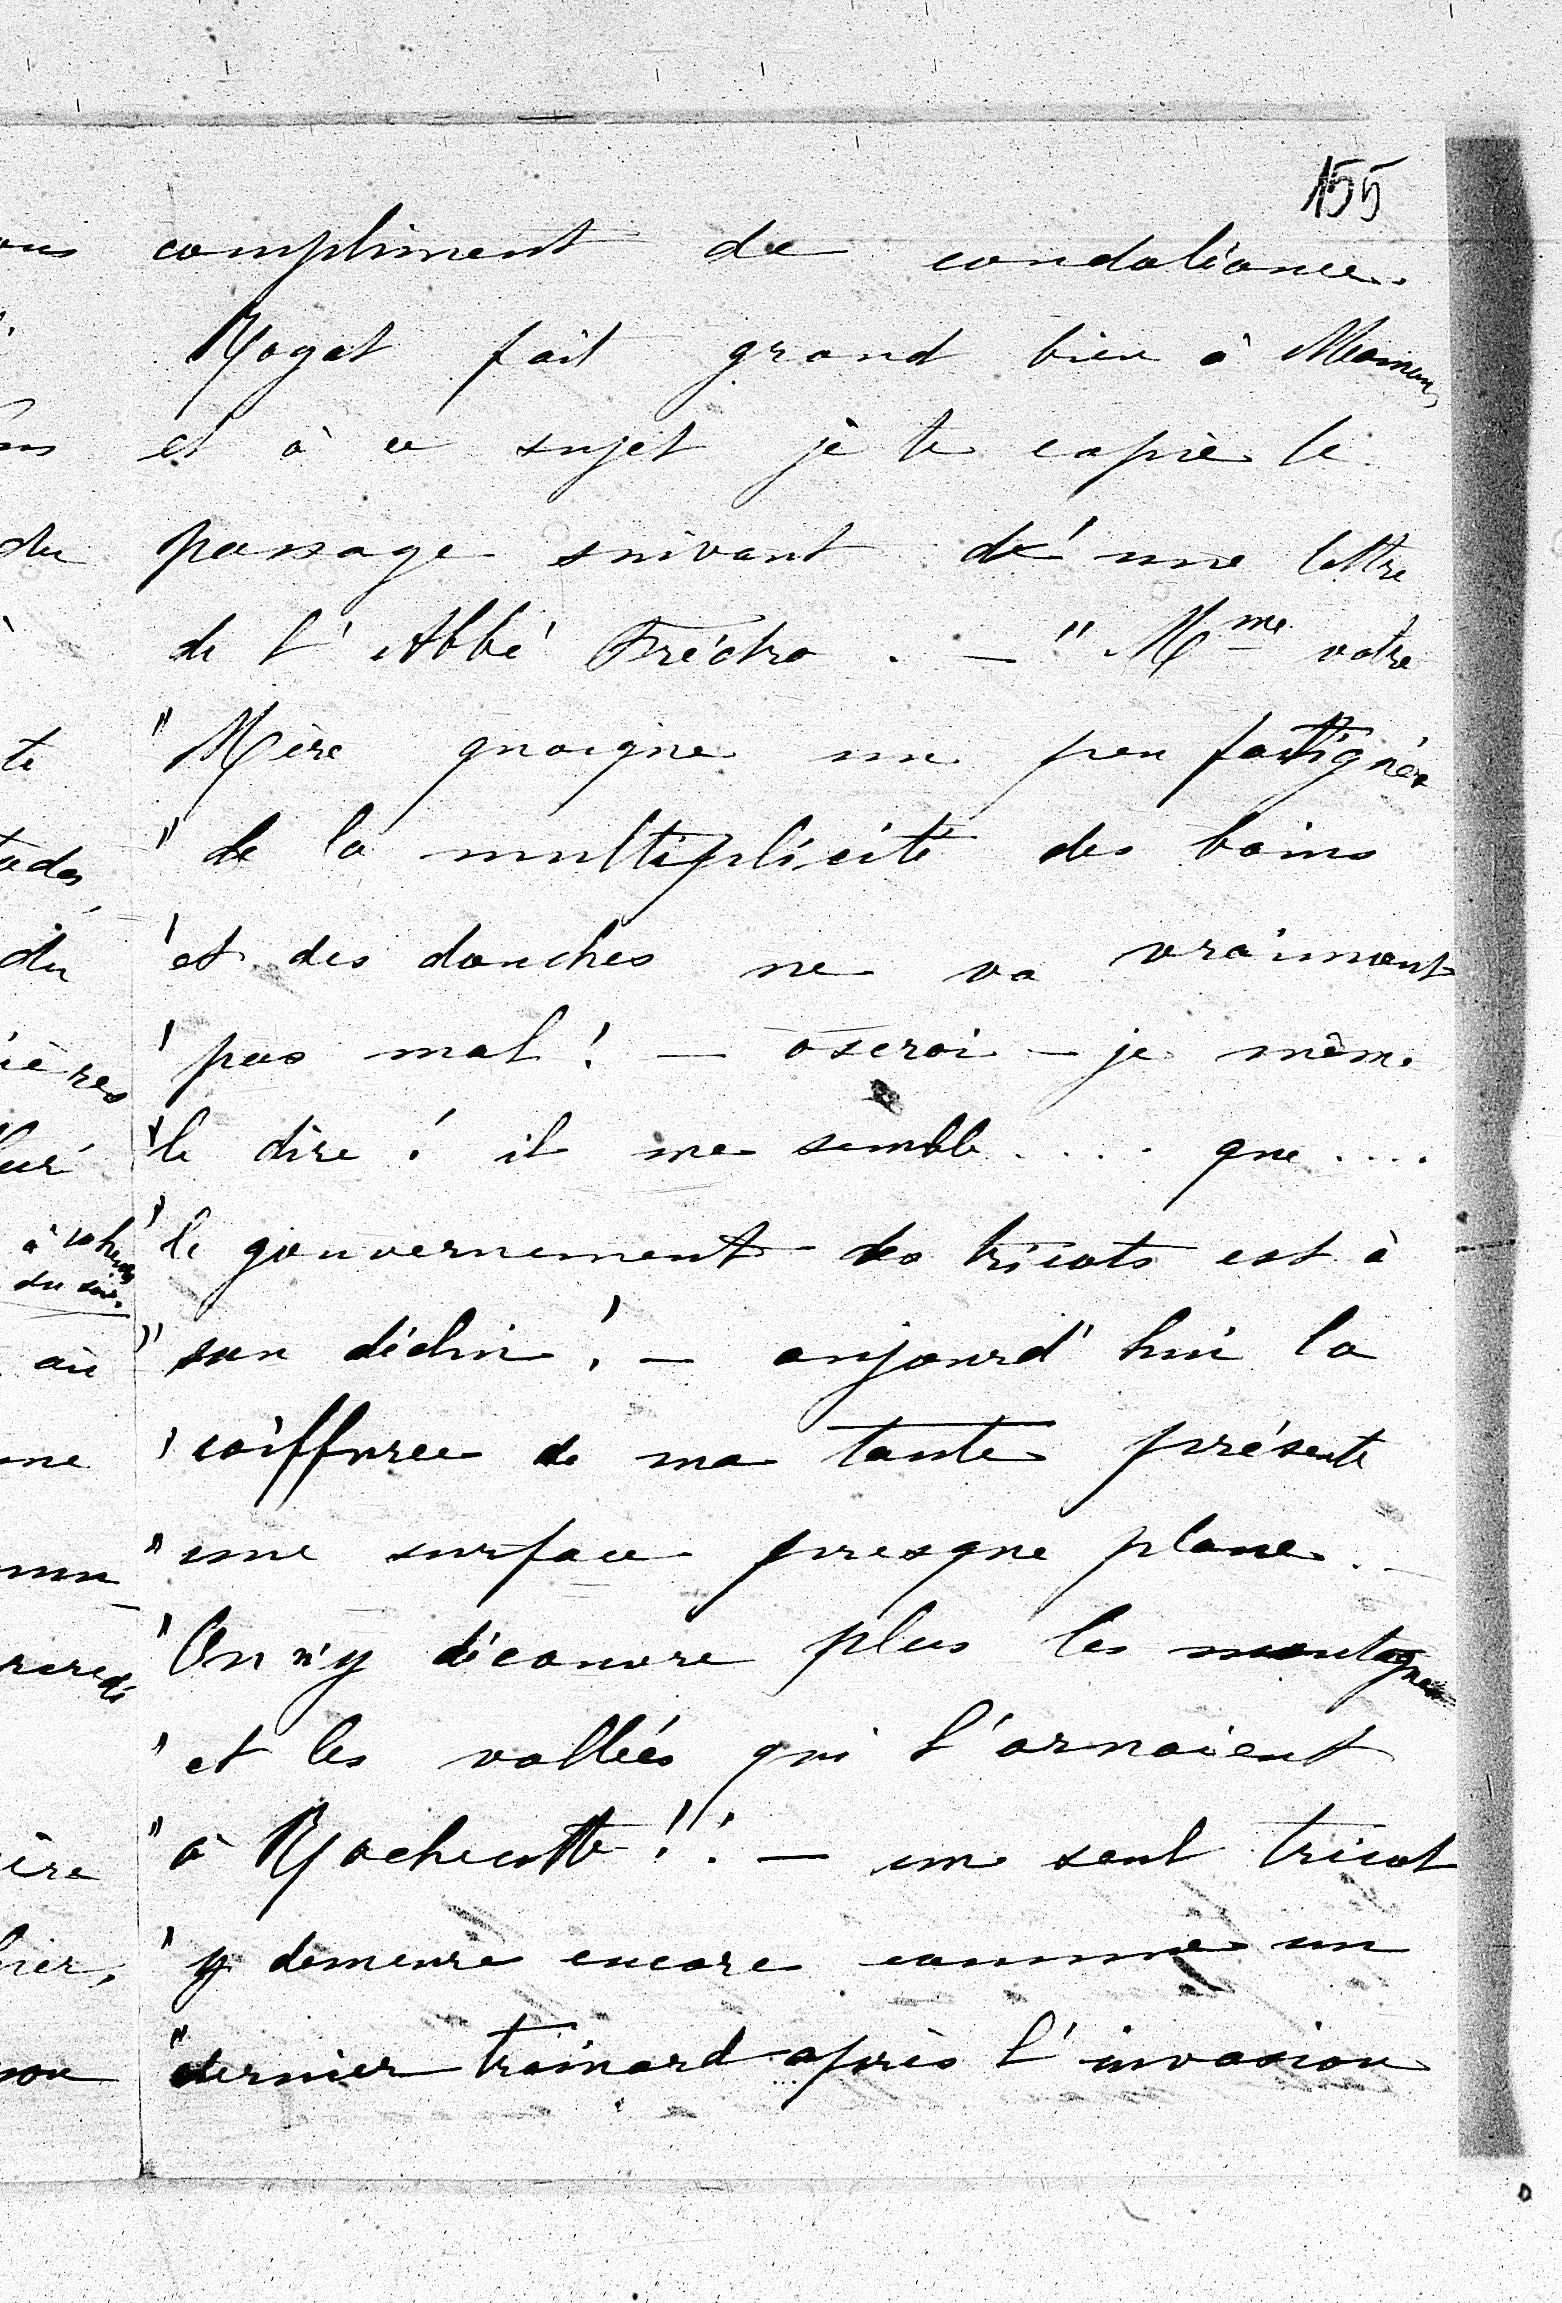 155
compliment de condoléance.
Royat fait grand bien à Maman,
et à ce sujet je te copie le
passage suivant d'une lettre
de l'Abbé . — " Mme votre
" Mère quoique un peu fatiguée
" de la multiplicité des bains
" et des douches ne va vraiment
" pas mal ! — oserai-je même
" le dire ! il me semble .... que ....
" le gouvernement des tricots est à
" son déclin ! — aujourd'hui la
" coiffure de ma tante présente
" une surface presque plane. —
" On n'y découvre plus les montagnes
" et les vallées qui l'ornaient
" à Rochecotte !! — un seul tricot
" y demeure encore comme un
" dernier traînard après l'invasion